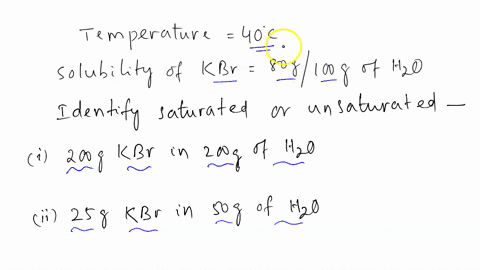 Temperature = 40°C.
Solubility of KBr = 80g/100g of H2O
Identify saturated or unsaturated —
(i) 200g KBr in 200g of H2O
(ii) 25g KBr in 50g of H2O